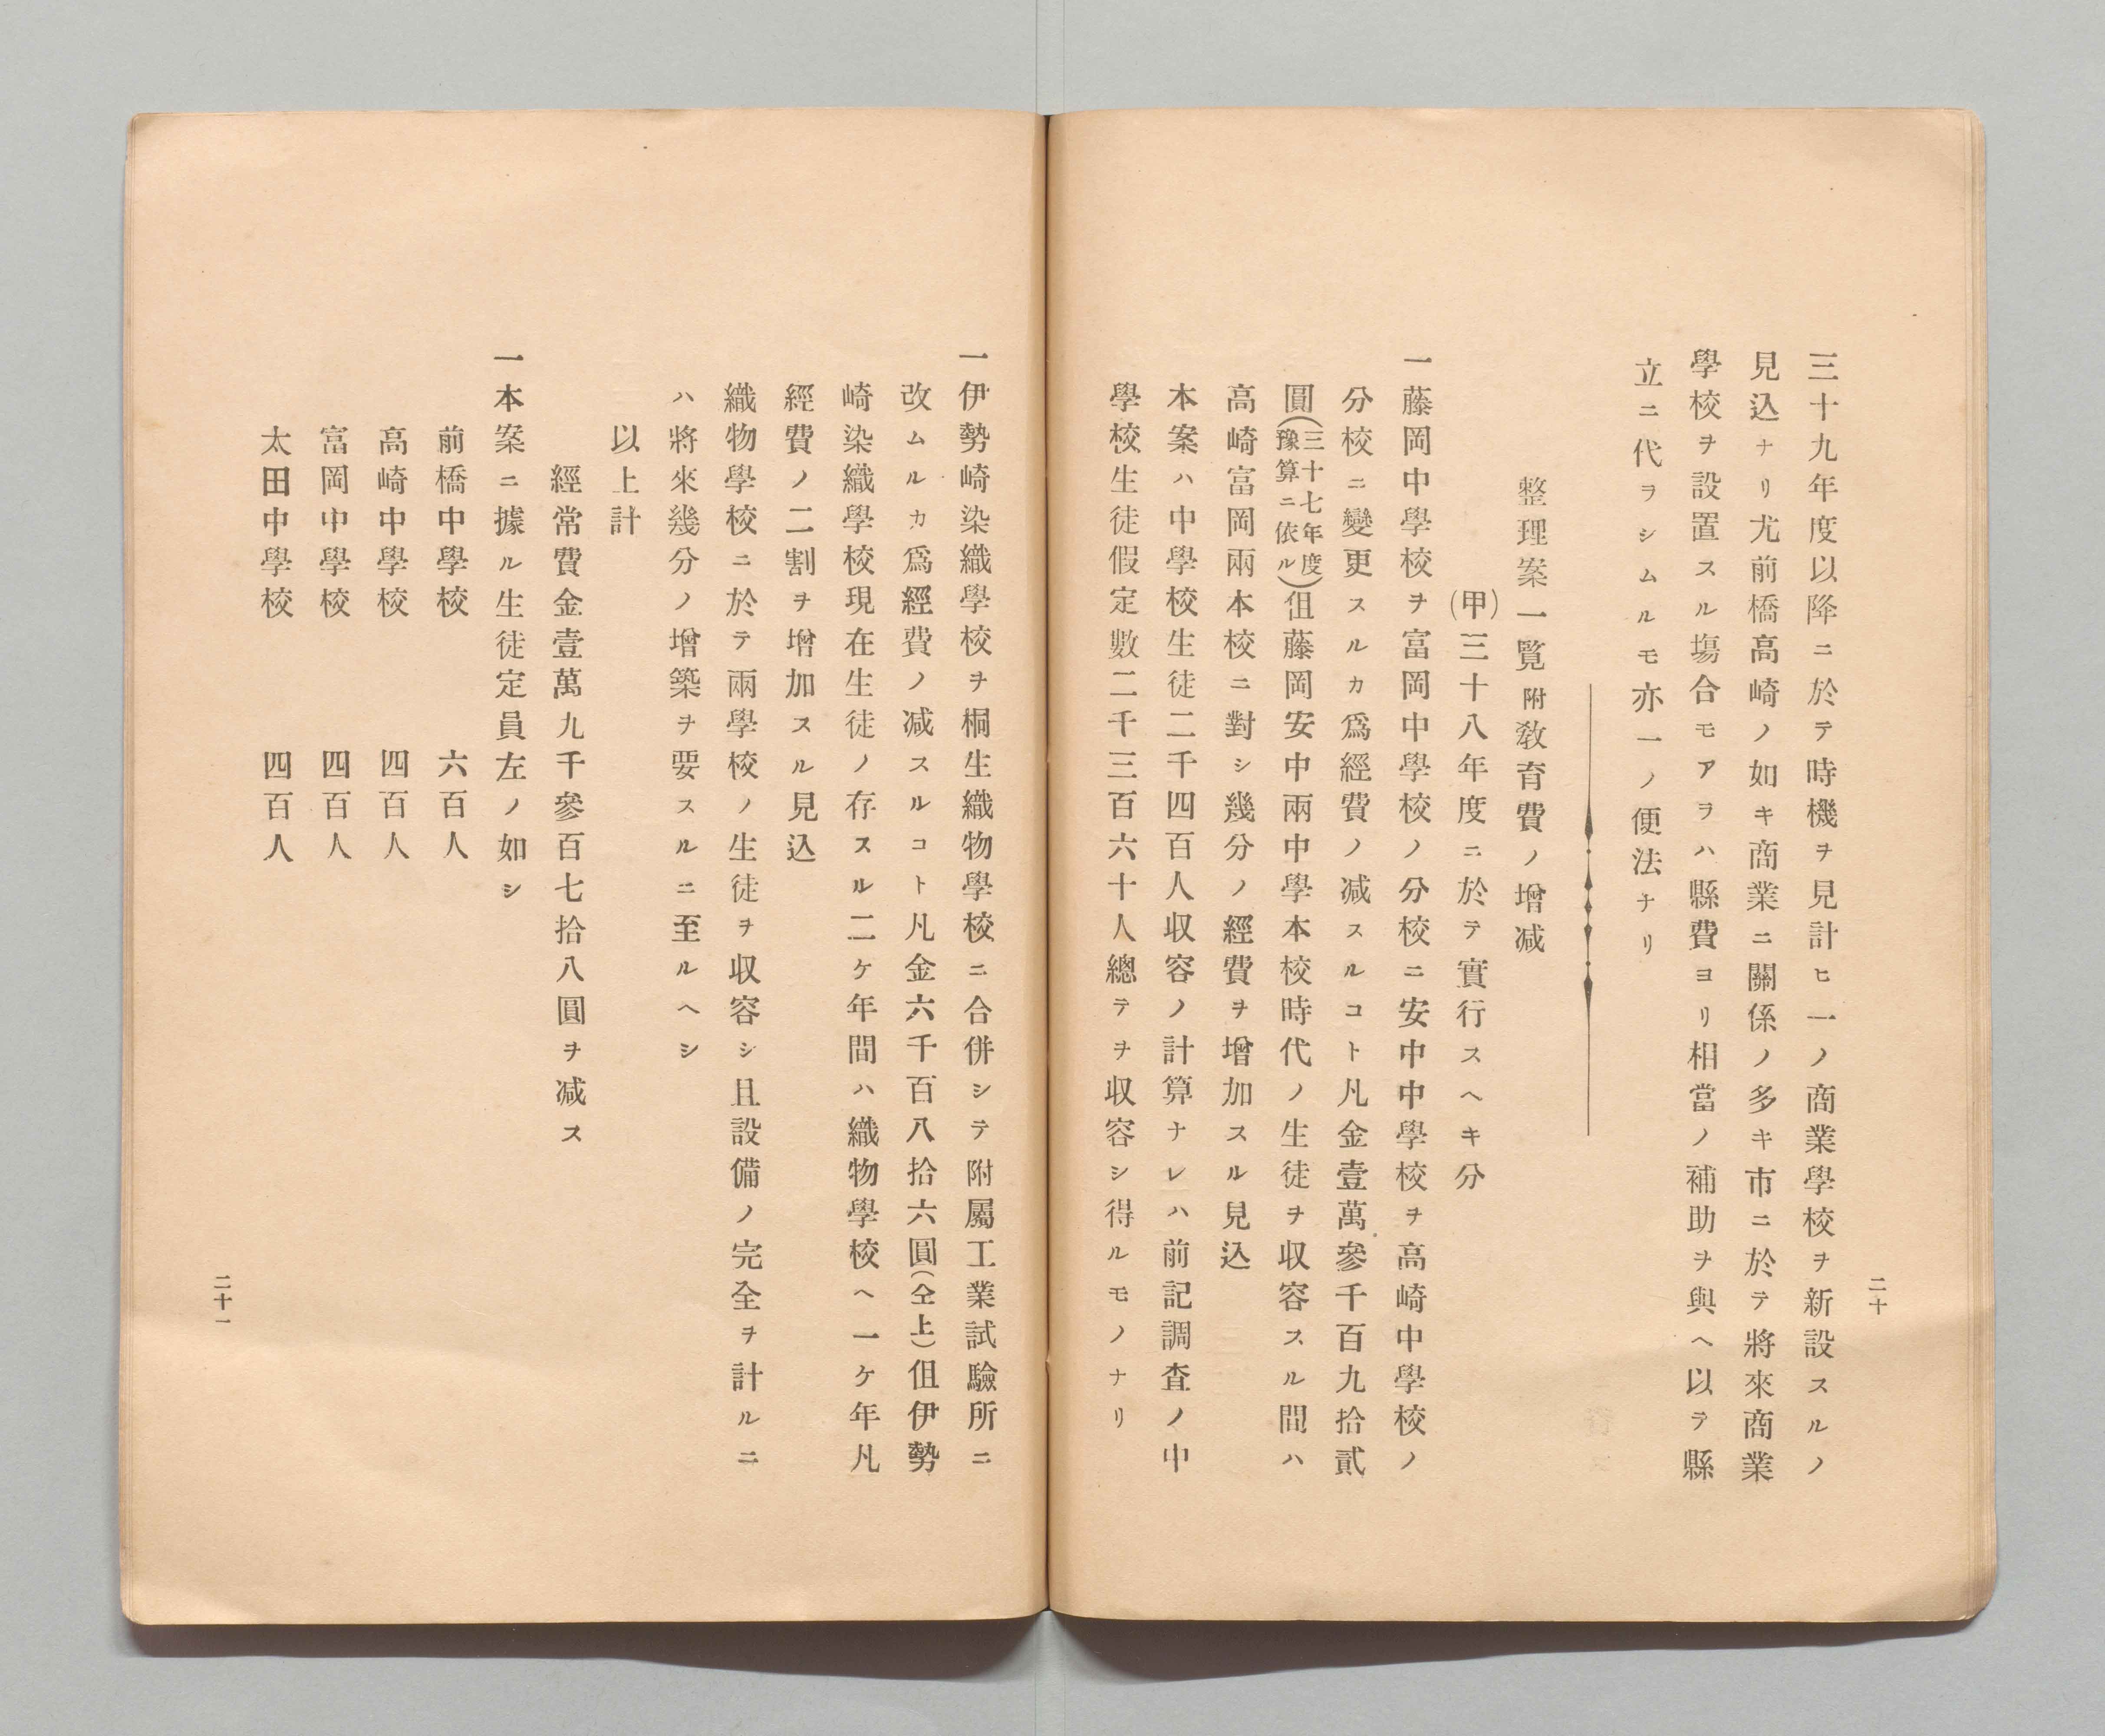 三十九年度以降ニ於テ時機ヲ見計ヒ一ノ商業學校ヲ新設スルノ
見込ナリ尤前橋高崎ノ如キ商業ニ關係ノ多キ市ニ於テ將來商業
學校ヲ設置スル塲合モアヲハ縣費ヨリ相當ノ補助ヲ與ヘ以テ縣
立ニ代ヲシムルモ亦一ノ便法ナリ
整理案一覧附敎育費ノ增減
(甲)三十八年度ニ於テ實行スヘキ分
一藤岡中學校ヲ富岡中學校ノ分校ニ安中中學校ヲ高崎中學校ノ
分校ニ變更スルカ爲經費ノ减スルコト凡金壹萬參千百九拾貳
圓(三十七年度豫算ニ依ル)伹藤岡安中兩中學本校時代ノ生徒ヲ収容スル間ハ
高崎富岡兩本校ニ對シ幾分ノ經費ヲ增加スル見込
本案ハ中學校生徒二千四百人収容ノ計算ナレハ前記調査ノ中
學校生徒假定數二千三百六十人總テヲ収容シ得ルモノナリ
二十
一伊勢崎染織學校ヲ桐生織物學校ニ合併シテ附屬工業試驗所ニ
改ムルカ爲經費ノ减スルコト凡金六千百八拾六圓(仝上)伹伊勢
崎染織學校現在生徒ノ存スル二ケ年間ハ織物學校ヘ一ケ年凡
經費ノ二割ヲ增加スル見込
織物學校ニ於テ兩學校ノ生徒ヲ収容シ且設備ノ完全ヲ計ルニ
ハ將來幾分ノ增築ヲ要スルニ至ルヘシ
以上計
經常費金壹萬九千參百七拾八圓ヲ减ス
一本案ニ據ル生徒定員左ノ如シ
前橋中學校 六百人
高崎中學校 四百人
富岡中學校 四百人
太田中學校 四百人
二十一